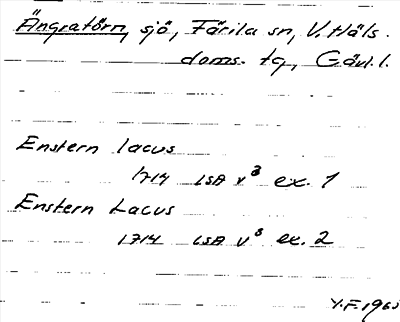 Ängratörn, sjö, Färila sn, V. Häls.
doms. tg, Gävl. l.
Enstern lacus
1714 LSA v⁸ ex. 1
Enstern Lacus
1714 LSA v⁸ ex. 2
Y.F. 1965